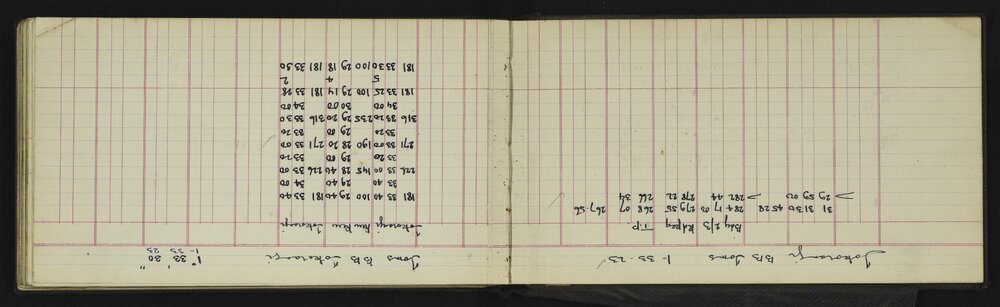 Tokorangi BB Toms 1-33-23
Bdy 2/3 Rd peg T.P
31 31 30 45 28 284 17 05 279 55 268 07 267.56
29 59 02 282 44 278 22 266 34
Toms BB Tokorangi 1° 33' 30"
1-33 23
Tokorangi Rua Rua Tokorangi
181 33 40 100 29 40 181 33 40
33 40 29 40 34 00
226 33 00 145 28 40 226 33 00
33 20 29 00 33 20
271 33 00 190 28 20 271 33 00
33 20 29 00 33 20
316 33 20 235 29 20 316 33 30
34 00 30 00 34 00
181 33 25 100 29 14 181 33 28
5 4 2
181 33 30 100 29 18 181 33 30